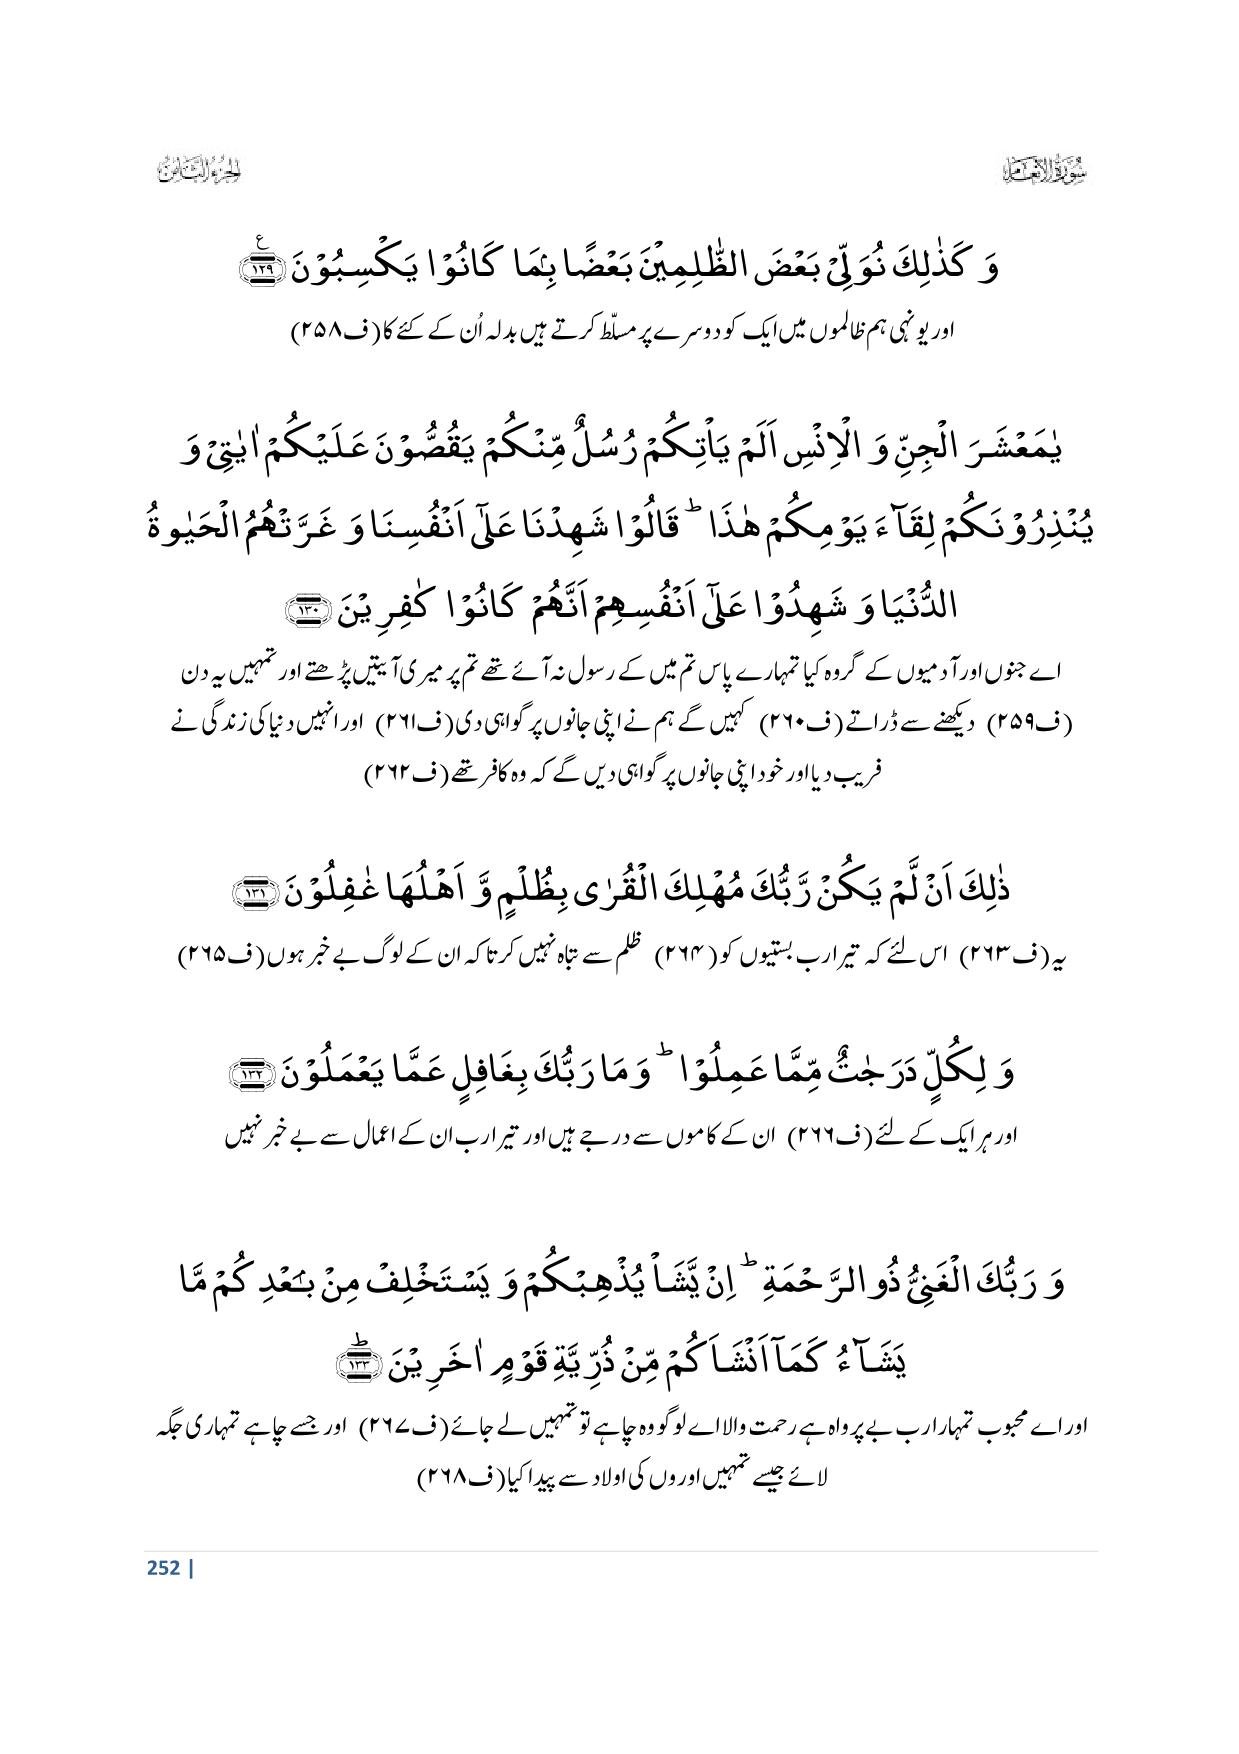 سُوْرَةُ الْاَنْعَام
الجزء الثامن
وَ كَذٰلِكَ نُوَلِّیْ بَعْضَ الظّٰلِمِیْنَ بَعْضًۢا بِمَا كَانُوْا یَكْسِبُوْنَ ﴿۱۲۹﴾ ع
اور یونہی ہم ظالموں میں ایک کو دوسرے پر مسلّط کرتے ہیں بدلہ اُن کے کئے کا(ف۲۵۸)
یٰمَعْشَرَ الْجِنِّ وَ الْاِنْسِ اَلَمْ یَاْتِكُمْ رُسُلٌ مِّنْكُمْ یَقُصُّوْنَ عَلَیْكُمْ اٰیٰتِیْ وَ
یُنْذِرُوْنَكُمْ لِقَآءَ یَوْمِكُمْ هٰذَا ؕ قَالُوْا شَهِدْنَا عَلٰۤی اَنْفُسِنَا وَ غَرَّتْهُمُ الْحَیٰوةُ
الدُّنْیَا وَ شَهِدُوْا عَلٰۤی اَنْفُسِهِمْ اَنَّهُمْ كَانُوْا كٰفِرِیْنَ ﴿۱۳۰﴾
اے جنوں اور آدمیوں کے گروہ کیا تمہارے پاس تم میں کے رسول نہ آئے تھے تم پر میری آیتیں پڑھتے اور تمہیں یہ دن
(ف۲۵۹) دیکھنے سے ڈراتے(ف۲۶۰) کہیں گے ہم نے اپنی جانوں پر گواہی دی(ف۲۶۱) اور انہیں دنیا کی زندگی نے
فریب دیا اور خود اپنی جانوں پر گواہی دیں گے کہ وہ کافر تھے(ف۲۶۲)
ذٰلِكَ اَنْ لَّمْ یَكُنْ رَّبُّكَ مُهْلِكَ الْقُرٰی بِظُلْمٍ وَّ اَهْلُهَا غٰفِلُوْنَ ﴿۱۳۱﴾
یہ(ف۲۶۳) اس لئے کہ تیرا رب بستیوں کو(۲۶۴) ظلم سے تباہ نہیں کرتا کہ ان کے لوگ بے خبر ہوں(ف۲۶۵)
وَ لِكُلٍّ دَرَجٰتٌ مِّمَّا عَمِلُوْا ؕ وَ مَا رَبُّكَ بِغَافِلٍ عَمَّا یَعْمَلُوْنَ ﴿۱۳۲﴾
اور ہر ایک کے لئے(ف۲۶۶) ان کے کاموں سے درجے ہیں اور تیرا رب ان کے اعمال سے بے خبر نہیں
وَ رَبُّكَ الْغَنِیُّ ذُو الرَّحْمَةِ ؕ اِنْ یَّشَاْ یُذْهِبْكُمْ وَ یَسْتَخْلِفْ مِنْۢ بَعْدِكُمْ مَّا
یَشَآءُ كَمَاۤ اَنْشَاَكُمْ مِّنْ ذُرِّیَّةِ قَوْمٍ اٰخَرِیْنَ ﴿۱۳۳﴾ؕ
اور اے محبوب تمہارا رب بے پرواہ ہے رحمت والا اے لوگو وہ چاہے تو تمہیں لے جائے(ف۲۶۷) اور جسے چاہے تمہاری جگہ
لائے جیسے تمہیں اوروں کی اولاد سے پیدا کیا(ف۲۶۸)
252 |